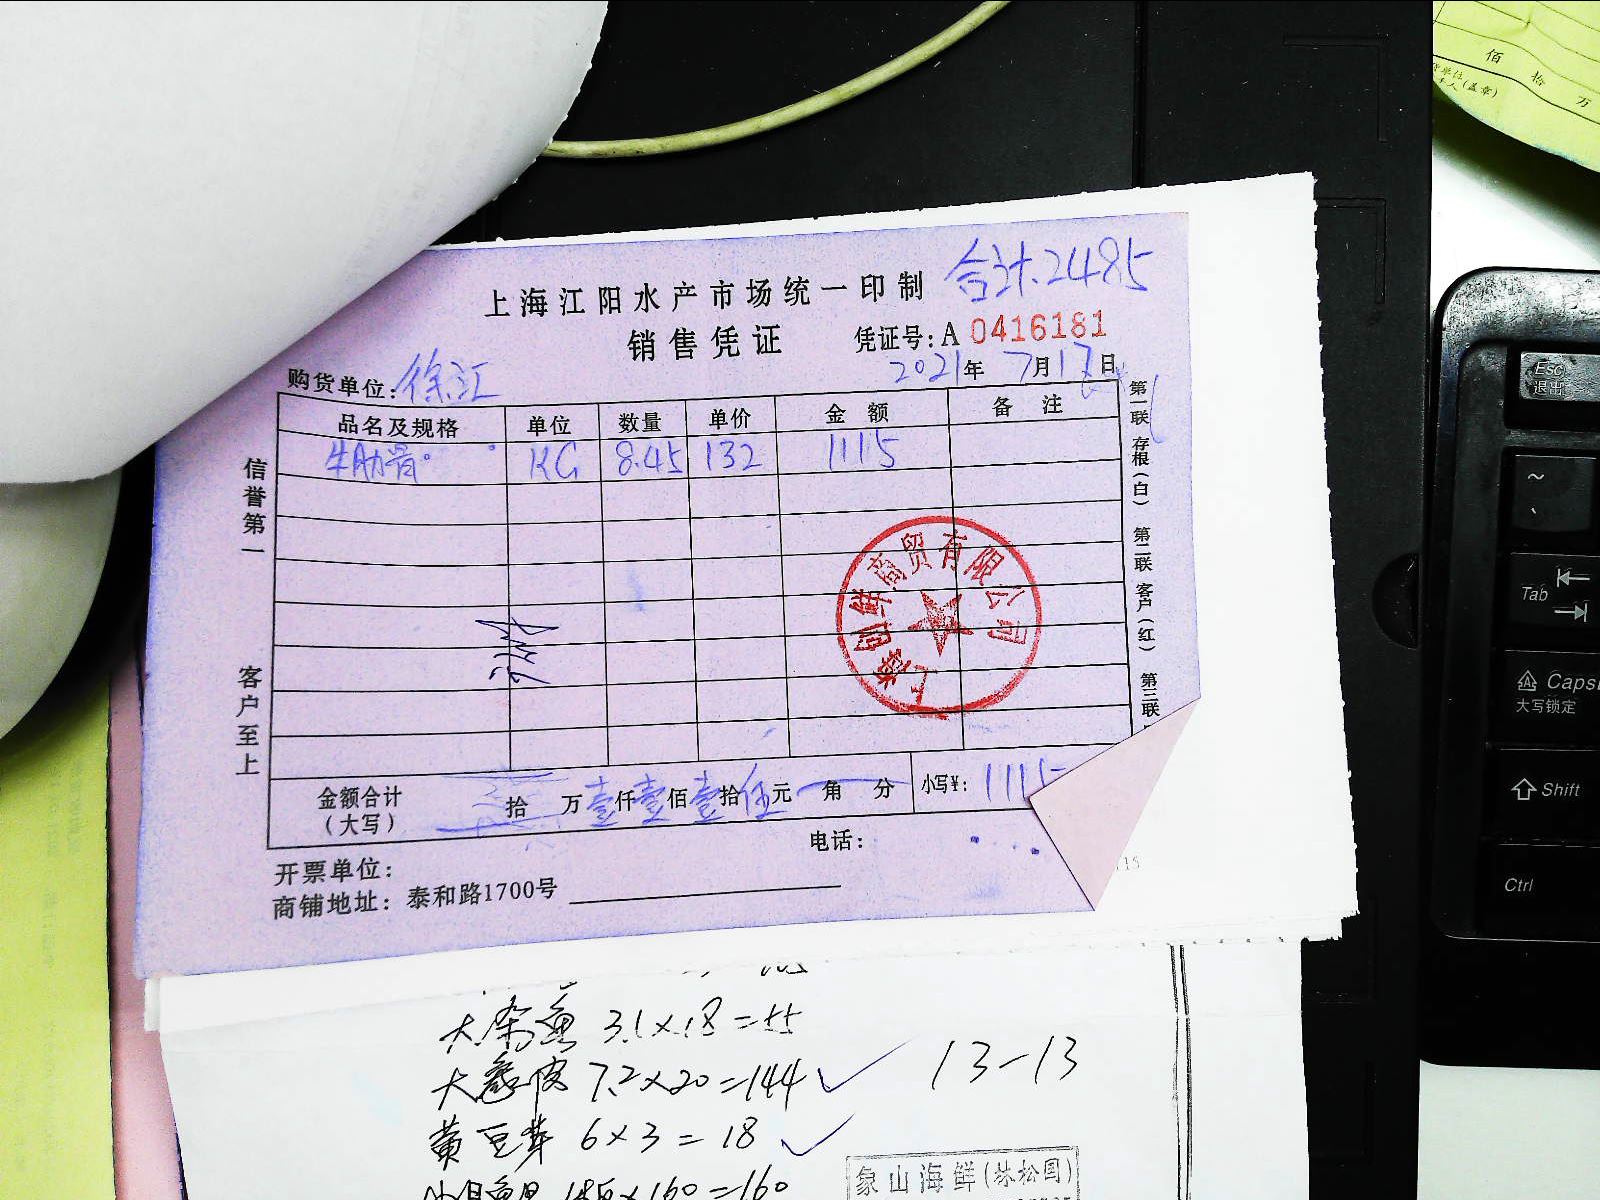 合计.2485
上海江阳水产市场统一印制
销售凭证 凭证号:A 0416181
购货单位:徐江 2021年 7月17日
品名及规格 单位 数量 单价 金额 备注
牛肋骨 KG 8.45 132 1115
信誉第一
客户至上
第一联 存根(白) 第二联 客户(红) 第三联
鲜商贸有限公司
金额合计(大写) 拾 万壹仟壹佰壹拾伍元 角 分 小写¥: 1115
电话:
开票单位:
商铺地址: 泰和路1700号
3.1×18=55
大 皮 7.2×20=144
13-13
黄豆芽 6×3=18
×160=160
象山海鲜(林松国)
佰 拾 万
(盖章)
Esc
退出
~
Tab
Caps
大写锁定
Shift
Ctrl